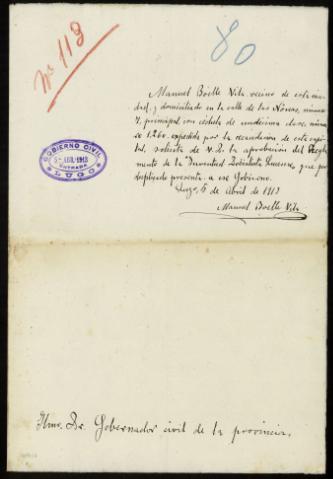 Nº 113
80
Manuel Boelle Vila vecino de esta ciu-
dad y domiciliado en la calle de las Nóreas, número
7, principal con cédula de undécima clase, núme-
ro 1.260 expedida por la recaudación de esta capi-
tal, solicita de V. S. la aprobación del Regla-
mento de la Juventud Socialista Lucense, que por
duplicado presenta a ese Gobierno.
Lugo, 5 de Abril de 1913
Manuel Boelle Vila
GOBIERNO CIVIL
5 ABR. 1913
ENTRADA
LUGO
Ilmo. Sr. Gobernador civil de la provincia.